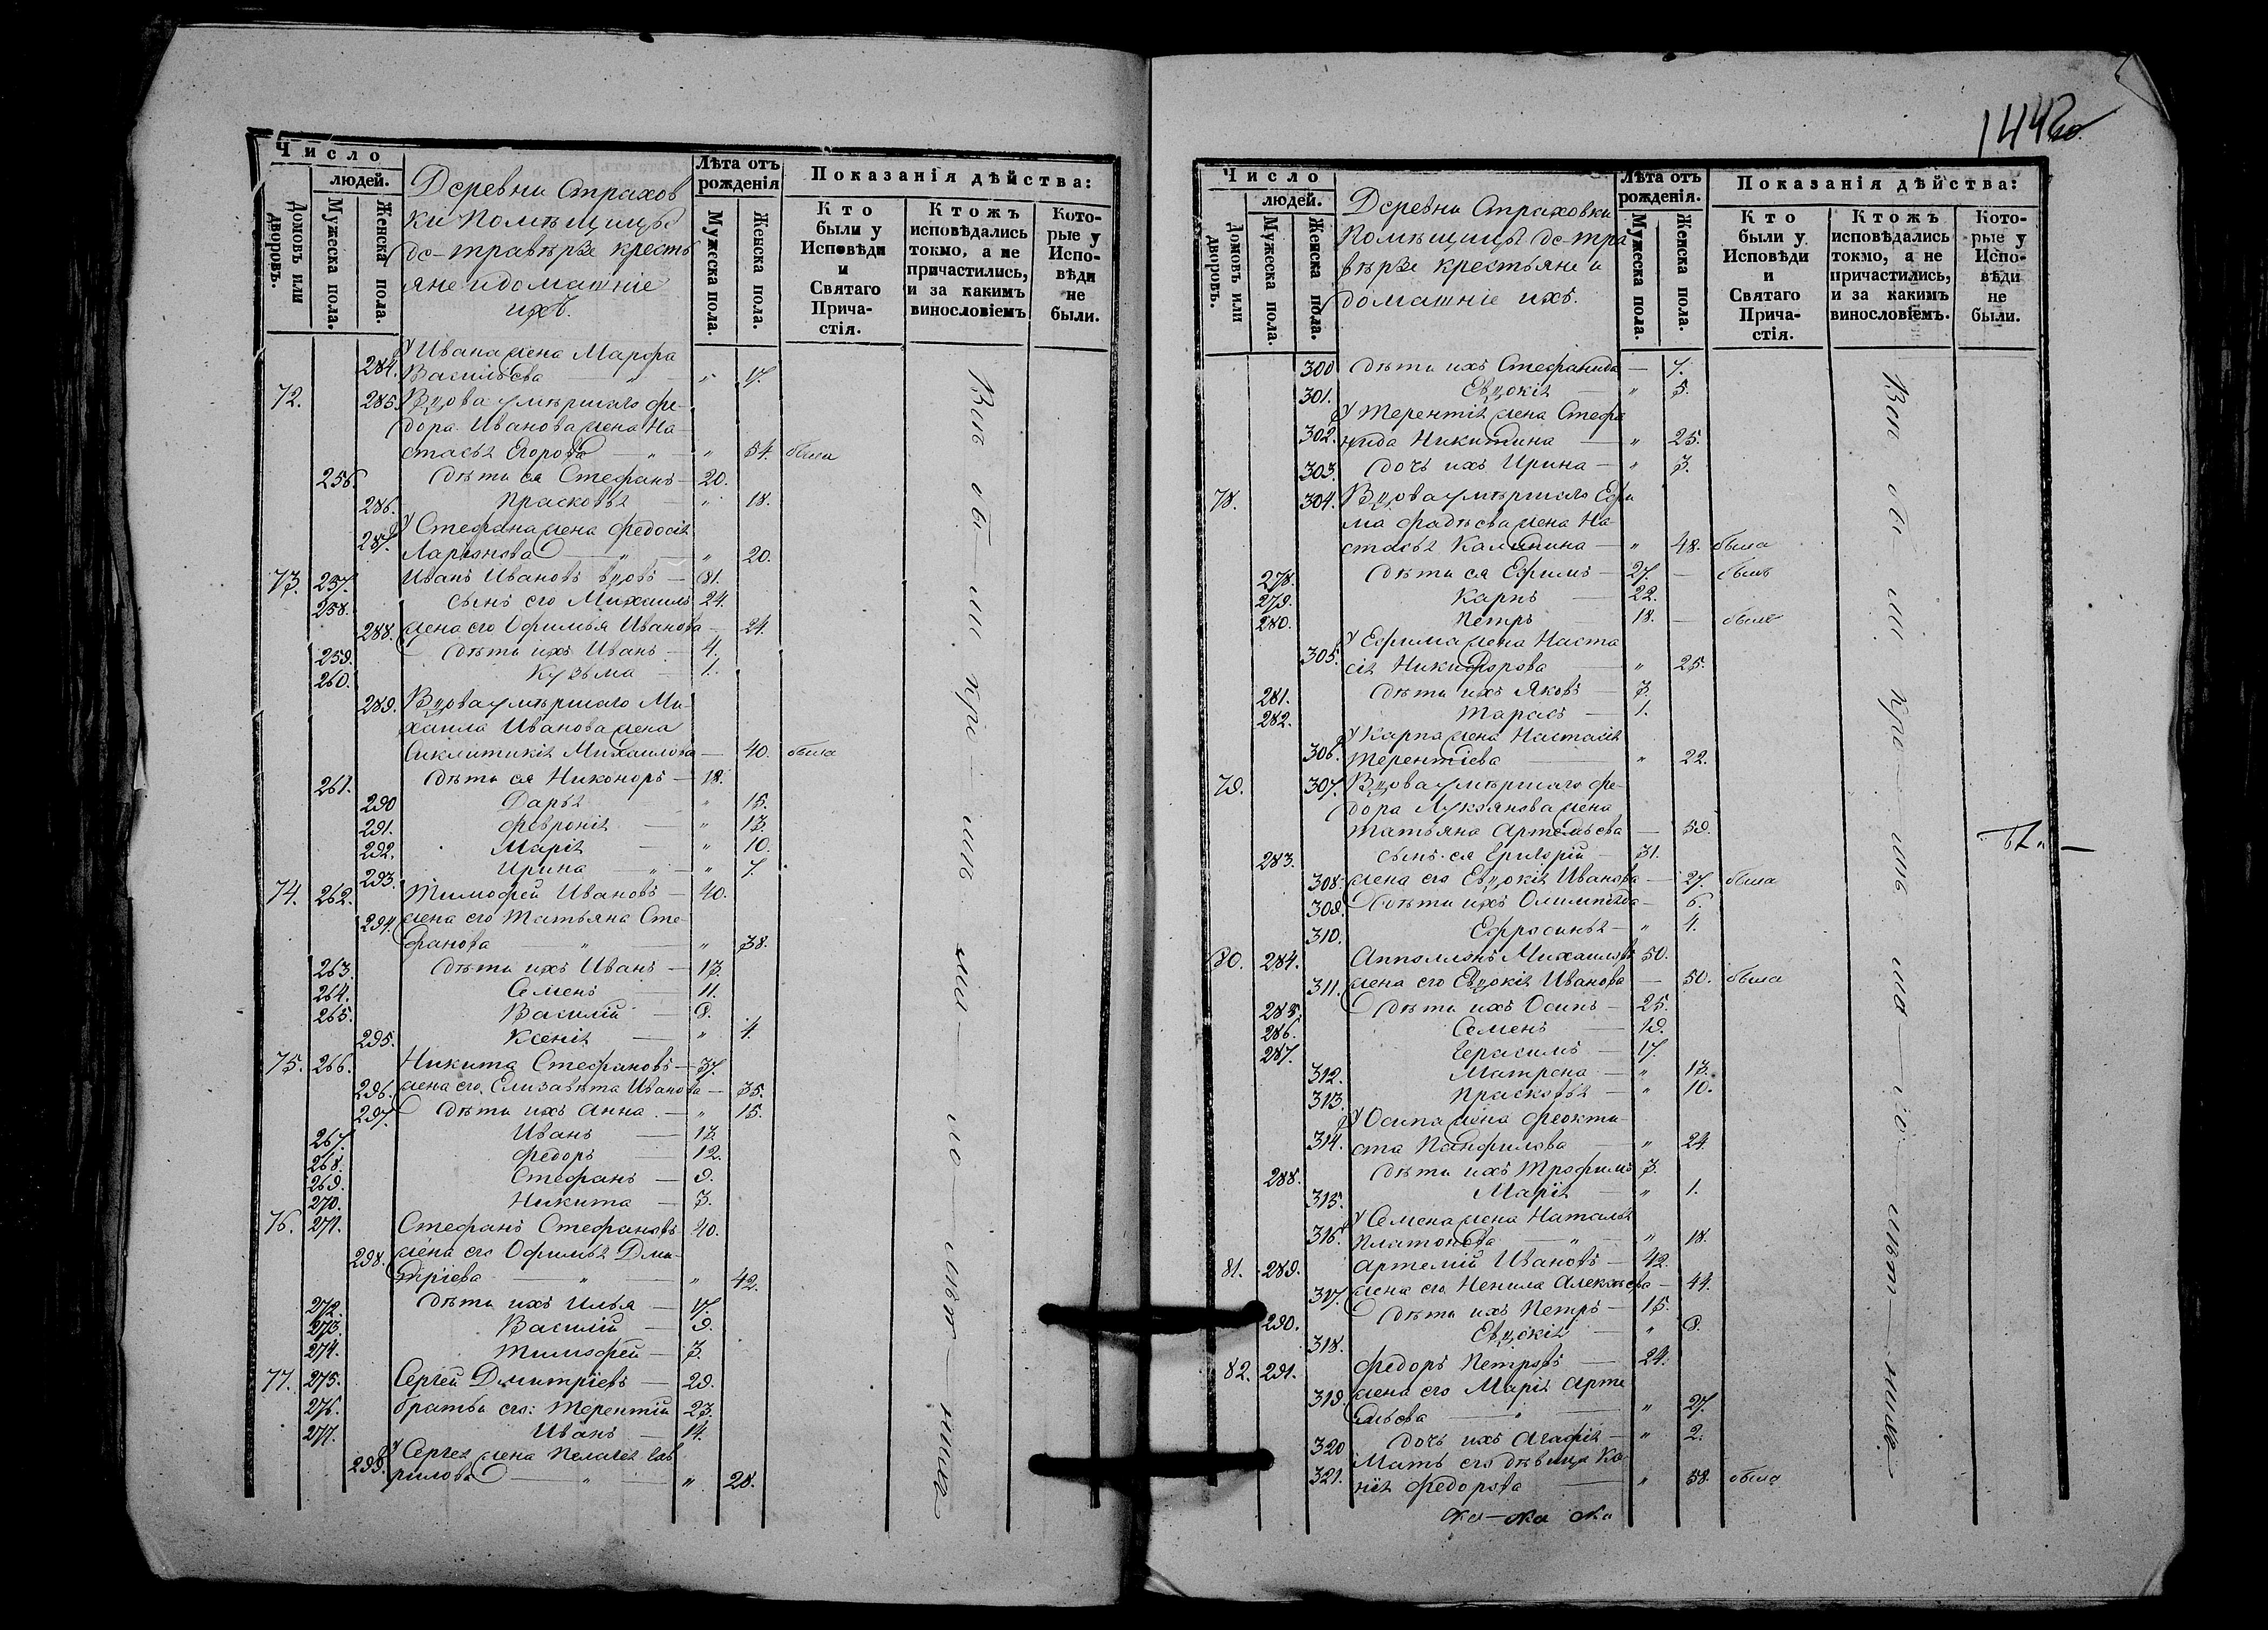 Число
людей.
Домовъ или дворовъ.
Мужеска пола.
Женска пола.
Деревни Страхов
ки Помѣщицы
де-Траверзе кресть
яне и домашніе
ихъ.
Лѣта отъ рожденія
Мужеска пола.
Женска пола.
Показанія дѣйства:
Кто были у Исповѣди и Святаго Прича-стія.
Ктожъ исповѣдались токмо, а не причастились, и за какимъ винословіемъ
Кото-рые у Испо-вѣди не были.
284. У Ивана жена Марфа
Васильева — " — " 17.
72. 285. Вдова умершаго Фе-
дора Иванова жена На-
стасья Егорова — " — " 54. была
256. Дѣти ея Стефанъ — 20.
286. Прасковья — " 18.
287. У Стефана жена Федосія
Ларіонова — " — " 20.
73. 257. Иванъ Ивановъ вдовъ — 81.
258. Сынъ его Михаилъ 24.
288. Жена его Офимья Иванова — 24.
259. Дѣти ихъ Иванъ — 4.
260. Кузьма — 1.
289. Вдова умершаго Ми-
хаила Иванова жена
Сиклитикія Михаилова — 40. была
261. Дѣти ея Никоноръ — 18.
290 Дарья " 15.
291. Февронія — " 13.
292. Марія — " 10.
293. Ирина — " — " 7.
74. 262. Тимофей Ивановъ — 40.
294. Жена его Татьяна Сте-
фанова — " — " 38.
263. Дѣти ихъ Иванъ — 13.
264. Семенъ — 11.
265. Василій — 8.
295. Ксенія — " 4.
75. 266. Никита Стефановъ — 37.
296. Жена его Елизавета Иванова — 35.
297. Дѣти ихъ Анна — " 15.
267. Иванъ — 13.
268. Федоръ — 12.
269. Стефанъ — 9.
270. Никита — 3.
76. 271. Стефанъ Стефановъ 40.
298. Жена его Офимья Дми-
тріева — " — " 42.
272. Дѣти ихъ Илья — 17.
273. Василій — 9.
274. Тимофей — 3.
77. 275. Сергей Дмитріевъ — 29.
276. Братья его: Терентій 23.
277. Иванъ — 14.
299. У Сергея жена Пелагея Гав
рилова — " — " 28.
144
Число
людей.
Домовъ или дворовъ.
Мужеска пола.
Женска пола.
Деревни Страховки
Помѣщицы де-Тра
верзе крестьяне и
домашніе ихъ.
Лѣта отъ рожденія.
Мужеска пола.
Женска пола.
Показанія дѣйства:
Кто были у Исповѣди и Святаго Прича-стія.
Ктожъ исповѣдались токмо, а не причастились, и за какимъ винословіемъ.
Кото-рые у Испо-вѣди не были.
300 Дѣти ихъ Стефанида — 7.
301. Евдокія — " 5.
302. У Терентія жена Стефа
нида Никитина — " 25.
303. Дочь ихъ Ирина — " 3.
78. 304. Вдова умершаго Ефи
ма Фадѣева жена На-
стасья Калинина — " 48. была
278. Дѣти ея Ефимъ — 27. — былъ
279. Карпъ — 22.
280. Петръ — 18. — былъ
305. У Ефима жена Наста
сія Никифорова — " 25.
281. Дѣти ихъ Яковъ — 3.
282. Тарасъ — 1.
306. У Карпа жена Настасія
Терентіева — " 22.
79. 307. Вдова умершаго Фе-
дора Лукьянова жена
Татьяна Артемьева — 59.
283. Сынъ ея Григорій — 31.
308. Жена его Евдокія Иванова — 27. была
309. Дѣти ихъ Олимпіада — 6.
310. Ефросинья — " 4.
80. 284. Апполонъ Михаиловъ 50.
311. Жена его Евдокія Иванова — 50. была
285. Дѣти ихъ Осипъ — 25.
286. Семенъ — 19.
287. Герасимъ — 17.
312. Матрона — " 13.
313. Прасковья — " 10.
314. У Осипа жена Феокти-
ста Панфилова — " 24
288. Дѣти ихъ Трофимъ 3.
315. Марія — " 1.
316. У Семена жена Наталья
Платонова — " — " 18.
81. 289. Артемій Ивановъ — 42.
317. Жена его Ненила Алексѣева — 44.
290. Дѣти ихъ Петръ — 15.
318. Евдокія — " 8.
82. 291. Федоръ Петровъ — 24.
319. Жена его Марія Арте
мьева — " — " 27.
320 Дочь ихъ Агафія — " 2.
321. Мать его дѣвица Ксе
нія Федорова — " 58. была